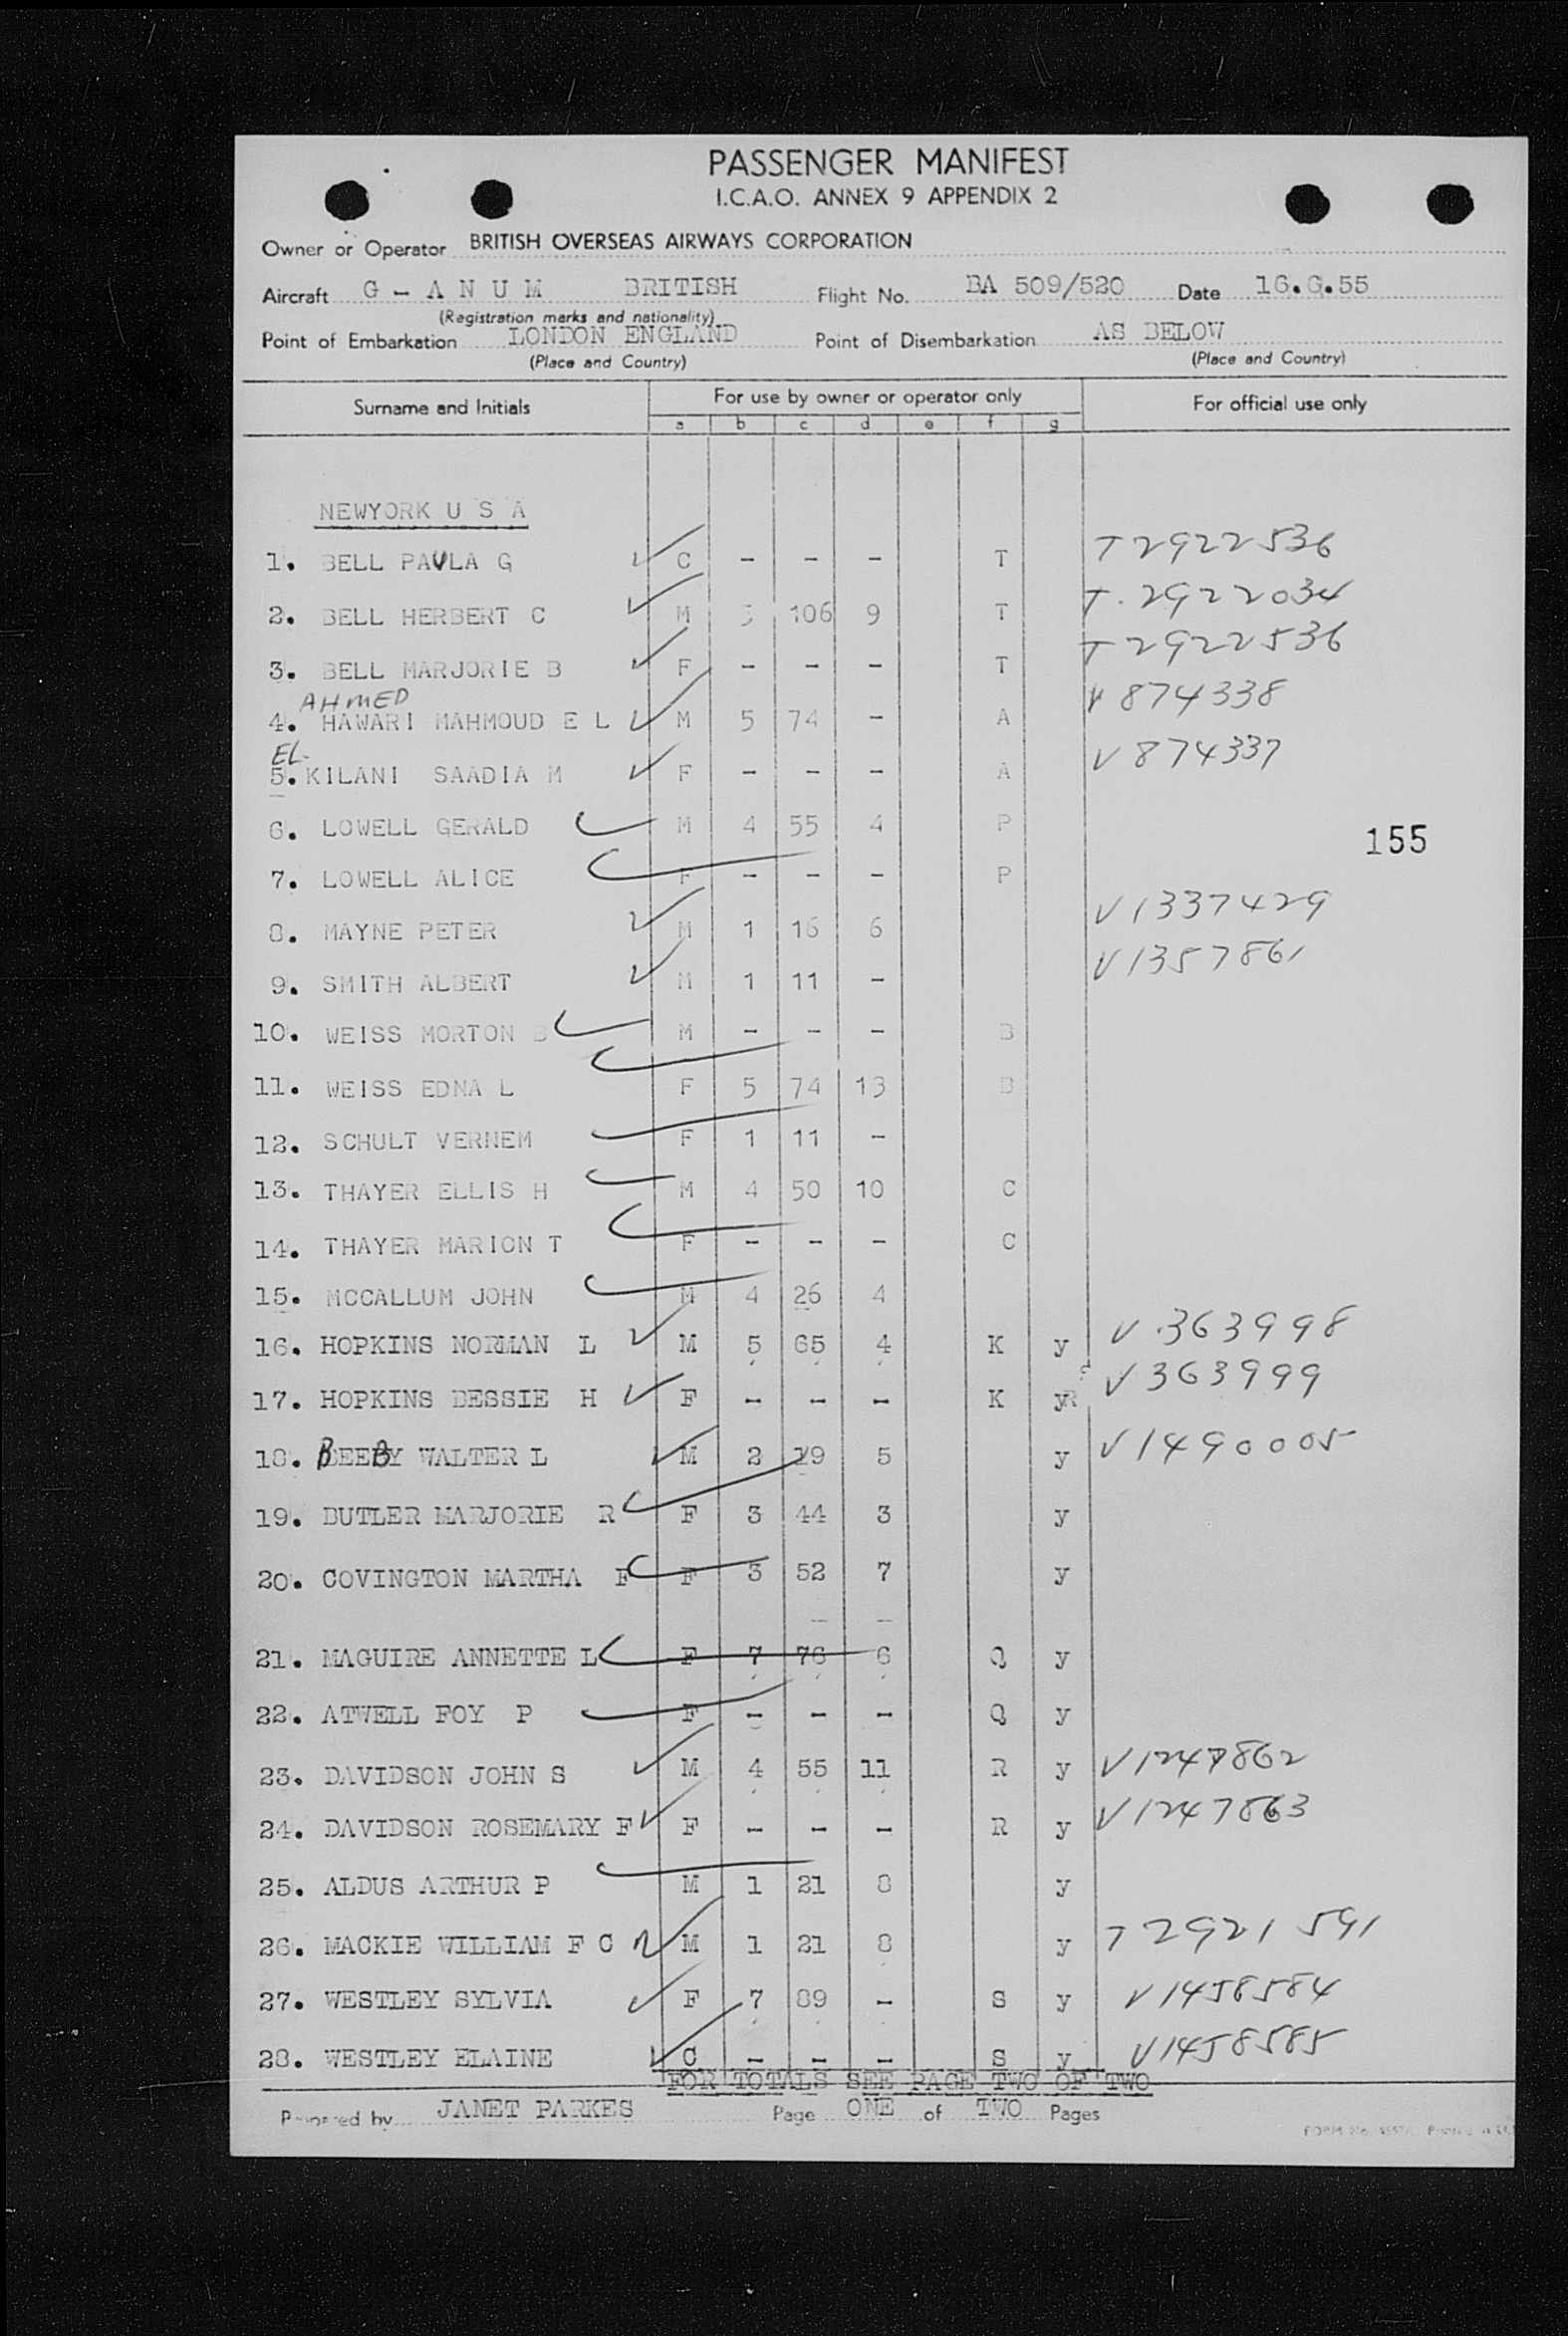 PASSENGER MANIFEST
I.C.A.O. ANNEX 9 APPENDIX 2
Owner or Operator BRITISH OVERSEAS AIRWAYS CORPORATION
Aircraft G - A N U M BRITISH Flight No. BA 509/520 Date 16.6.55
(Registration marks and nationality)
Point of Embarkation LONDON ENGLAND Point of Disembarkation AS BELOW
(Place and Country) (Place and Country)
Surname and Initials For use by owner or operator only For official use only
a b c d e f g
NEWYORK U S A
1. BELL PAULA G C - - - T T2922536
2. BELL HERBERT C M 5 106 9 T T.2922034
3. BELL MARJORIE B F - - - T T2922536
AHMED
4. HAWARI MAHMOUD E L M 5 74 - A V874338
EL-
5. KILANI SAADIA M F - - - A V874337
6. LOWELL GERALD M 4 55 4 P
155
7. LOWELL ALICE F - - - P
8. MAYNE PETER M 1 16 6 V1337429
9. SMITH ALBERT M 1 11 - V1357861
10. WEISS MORTON B M - - - B
11. WEISS EDNA L F 5 74 13 B
12. SCHULT VERNEM F 1 11 -
13. THAYER ELLIS H M 4 50 10 C
14. THAYER MARION T F - - - C
15. MCCALLUM JOHN M 4 26 4
16. HOPKINS NORMAN L M 5 65 4 K y V.363998
17. HOPKINS BESSIE H F - - - K y V363999
18. BEEBY WALTER L M 2 29 5 y V1490005
19. BUTLER MARJORIE R F 3 44 3 y
20. COVINGTON MARTHA F F 3 52 7 y
21. MAGUIRE ANNETTE L F 7 76 6 Q y
22. ATWELL FOY P F - - - Q y
23. DAVIDSON JOHN S M 4 55 11 R y V1247862
24. DAVIDSON ROSEMARY F F - - - R y V1247863
25. ALDUS ARTHUR P M 1 21 8 y
26. MACKIE WILLIAM F C M 1 21 8 y T2921591
27. WESTLEY SYLVIA F 7 89 - S y V1458584
28. WESTLEY ELAINE C - - - S y V1458585
FOR TOTALS SEE PAGE TWO OF TWO
Prepared by JANET PARKES Page ONE of TWO Pages